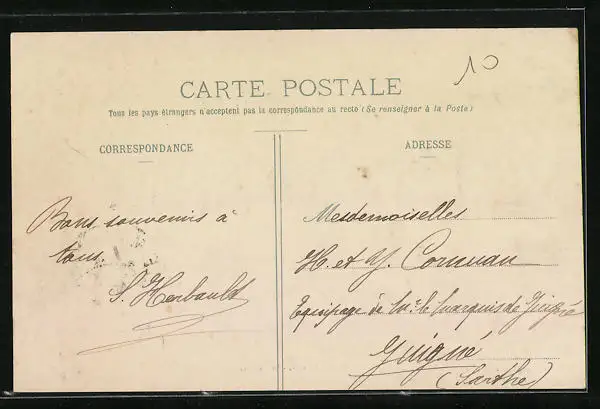 10
CARTE POSTALE
Tous les pays étrangers n'acceptent pas la correspondance au recto (Se renseigner à la Poste)
CORRESPONDANCE
ADRESSE
Bons souvenirs à
tous
S. Herbault
Mesdemoiselles
H. et Y. Cornuau
Equipage de Mr le Marquis de Juigné
Juigné
(Sarthe)